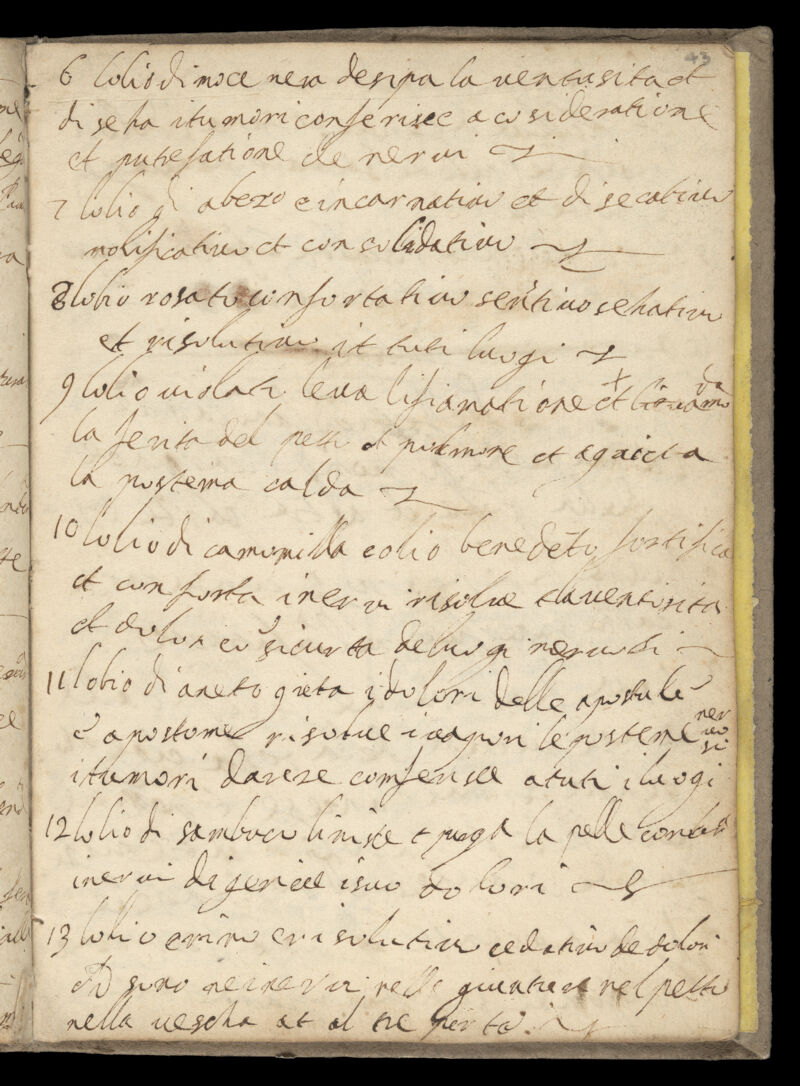 43
6 lolio di noce nera desipa la ventusita et
di seha itumori conferisce a cosideratione
et putrefatione de nervi
7 lolio di abezo e incarnativo et disecativo
molificativo et consolidativo
8 lolio rosato confortativo
et risolutivo it tuti luogi
9 lolio violati leva lifiamatione et
la ferita del petto et polmone et agaicia
la postema calda
10 lolio di camomilla e olio benedeto fortifica
et conforta i nervi risolve la ventosita
et dolori co sicurta de luogi nervosi
11 lolio di aneto gieta i dolori delle apostule
e apostome risolve i vapori le posteme nervosi
i tumori d conferisce a tuti i luogi
12 lolio di sambuco linisce et purga la pelle conforta
i nervi digerisce i suo dolori
13 lolio e risolutivo cedativo de dolori
sono ne i nervi nelle giunture nel petto
nella vescha et al tre parte